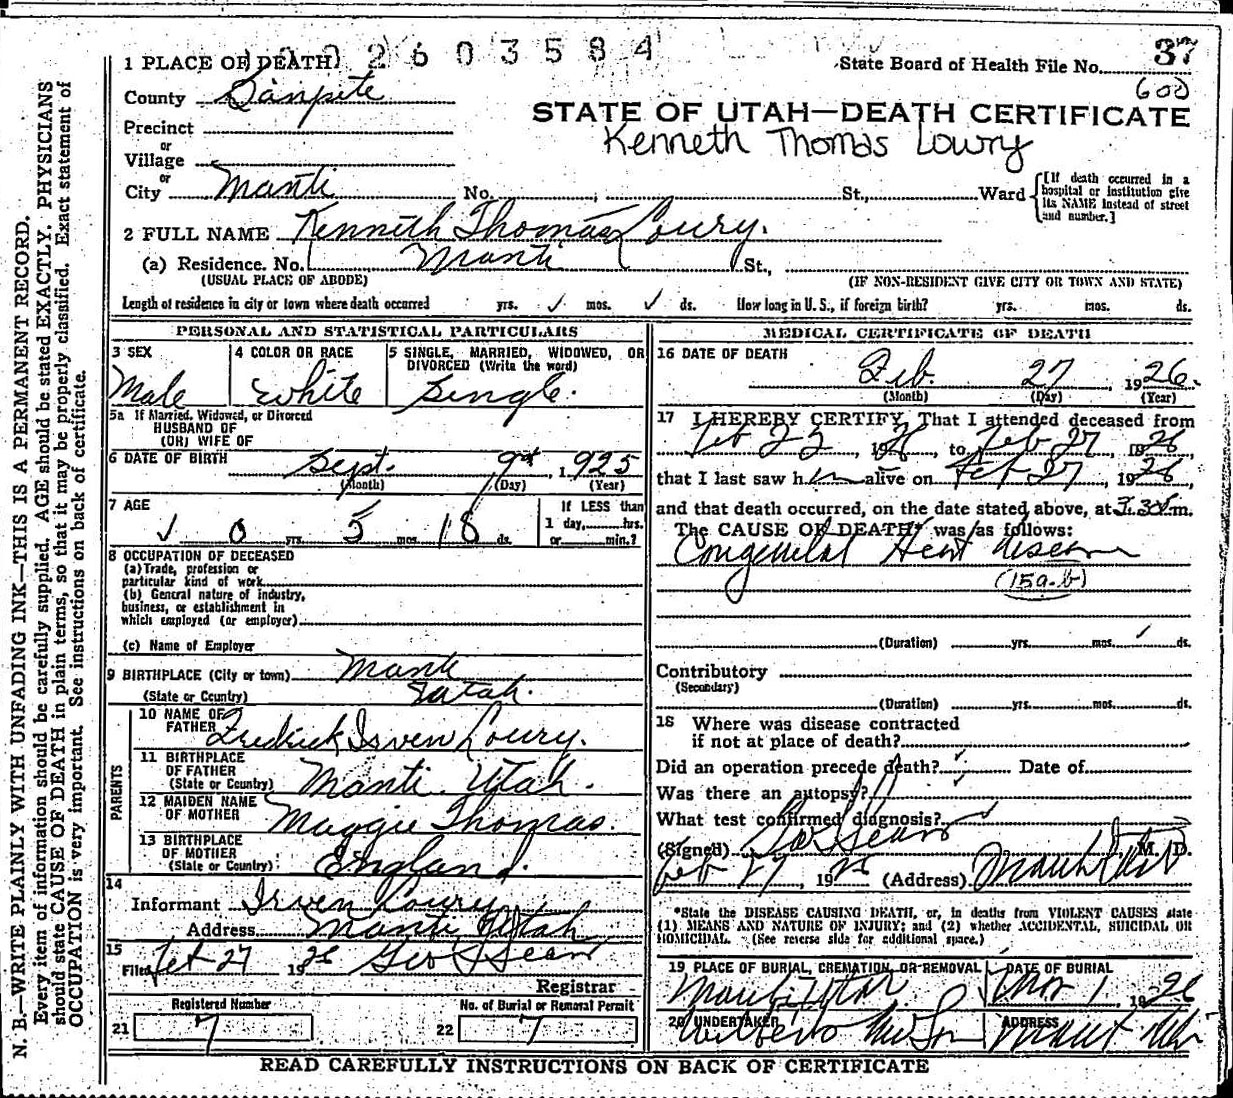 1 PLACE OF DEATH 1 0 0 2 6 0 3 5 8 4
State Board of Health File No. 37
600
County Sanpete
STATE OF UTAH—DEATH CERTIFICATE
Kenneth Thomas Lowry
Precinct
or
Village
or
City Manti No. St., Ward
[If death occurred in a hospital or institution give its NAME instead of street and number.]
2 FULL NAME Kenneth Thomas Lowry.
(a) Residence. No. Manti St.,
(USUAL PLACE OF ABODE) (IF NON-RESIDENT GIVE CITY OR TOWN AND STATE)
Length of residence in city or town where death occurred yrs. mos. ds. How long in U. S., if foreign birth? yrs. mos. ds.
PERSONAL AND STATISTICAL PARTICULARS
3 SEX
Male
4 COLOR OR RACE
White
5 SINGLE, MARRIED, WIDOWED, OR
DIVORCED (Write the word)
Single.
5a If Married, Widowed, or Divorced
HUSBAND OF
(OR) WIFE OF
6 DATE OF BIRTH Sept. 9 1925
(Month) (Day) (Year)
7 AGE
0 yrs. 5 mos. 18 ds.
If LESS than
1 day, hrs.
or min.?
8 OCCUPATION OF DECEASED
(a) Trade, profession or
particular kind of work
(b) General nature of industry,
business, or establishment in
which employed (or employer)
(c) Name of Employer
9 BIRTHPLACE (City or town) Manti
(State or Country) Utah.
PARENTS
10 NAME OF
FATHER Fredrick Irven Lowry.
11 BIRTHPLACE
OF FATHER
(State or Country) Manti Utah.
12 MAIDEN NAME
OF MOTHER Maggie Thomas.
13 BIRTHPLACE
OF MOTHER
(State or Country) England.
14
Informant Irven Lowry
Address Manti Utah
15
Filed Feb 27 1926 Geo Sears
Registrar
Registered Number
21 7
No. of Burial or Removal Permit
22 7
MEDICAL CERTIFICATE OF DEATH
16 DATE OF DEATH
Feb. 27, 1926.
(Month) (Day) (Year)
17 I HEREBY CERTIFY, That I attended deceased from
Feb 22, 1926, to Feb 27, 1926,
that I last saw him alive on Feb 27, 1926,
and that death occurred, on the date stated above, at m.
The CAUSE OF DEATH* was as follows:
Congenital Heart disease
(159.b)
(Duration) yrs. mos. ds.
Contributory
(Secondary)
(Duration) yrs. mos. ds.
18 Where was disease contracted
if not at place of death?
Did an operation precede death? Date of
Was there an autopsy?
What test confirmed diagnosis?
(Signed) Geo Sears M. D.
Feb 27, 1926 (Address) Manti Utah
*State the DISEASE CAUSING DEATH, or, in deaths from VIOLENT CAUSES state
(1) MEANS AND NATURE OF INJURY; and (2) whether ACCIDENTAL, SUICIDAL OR
HOMICIDAL. (See reverse side for additional space.)
19 PLACE OF BURIAL, CREMATION, OR REMOVAL
Manti Utah.
DATE OF BURIAL
Mar 1 1926
20 UNDERTAKER
ADDRESS
Manti Utah
READ CAREFULLY INSTRUCTIONS ON BACK OF CERTIFICATE
N. B.—WRITE PLAINLY WITH UNFADING INK—THIS IS A PERMANENT RECORD.
Every item of information should be carefully supplied. AGE should be stated EXACTLY. PHYSICIANS
should state CAUSE OF DEATH in plain terms, so that it may be properly classified. Exact statement of
OCCUPATION is very important. See instructions on back of certificate.